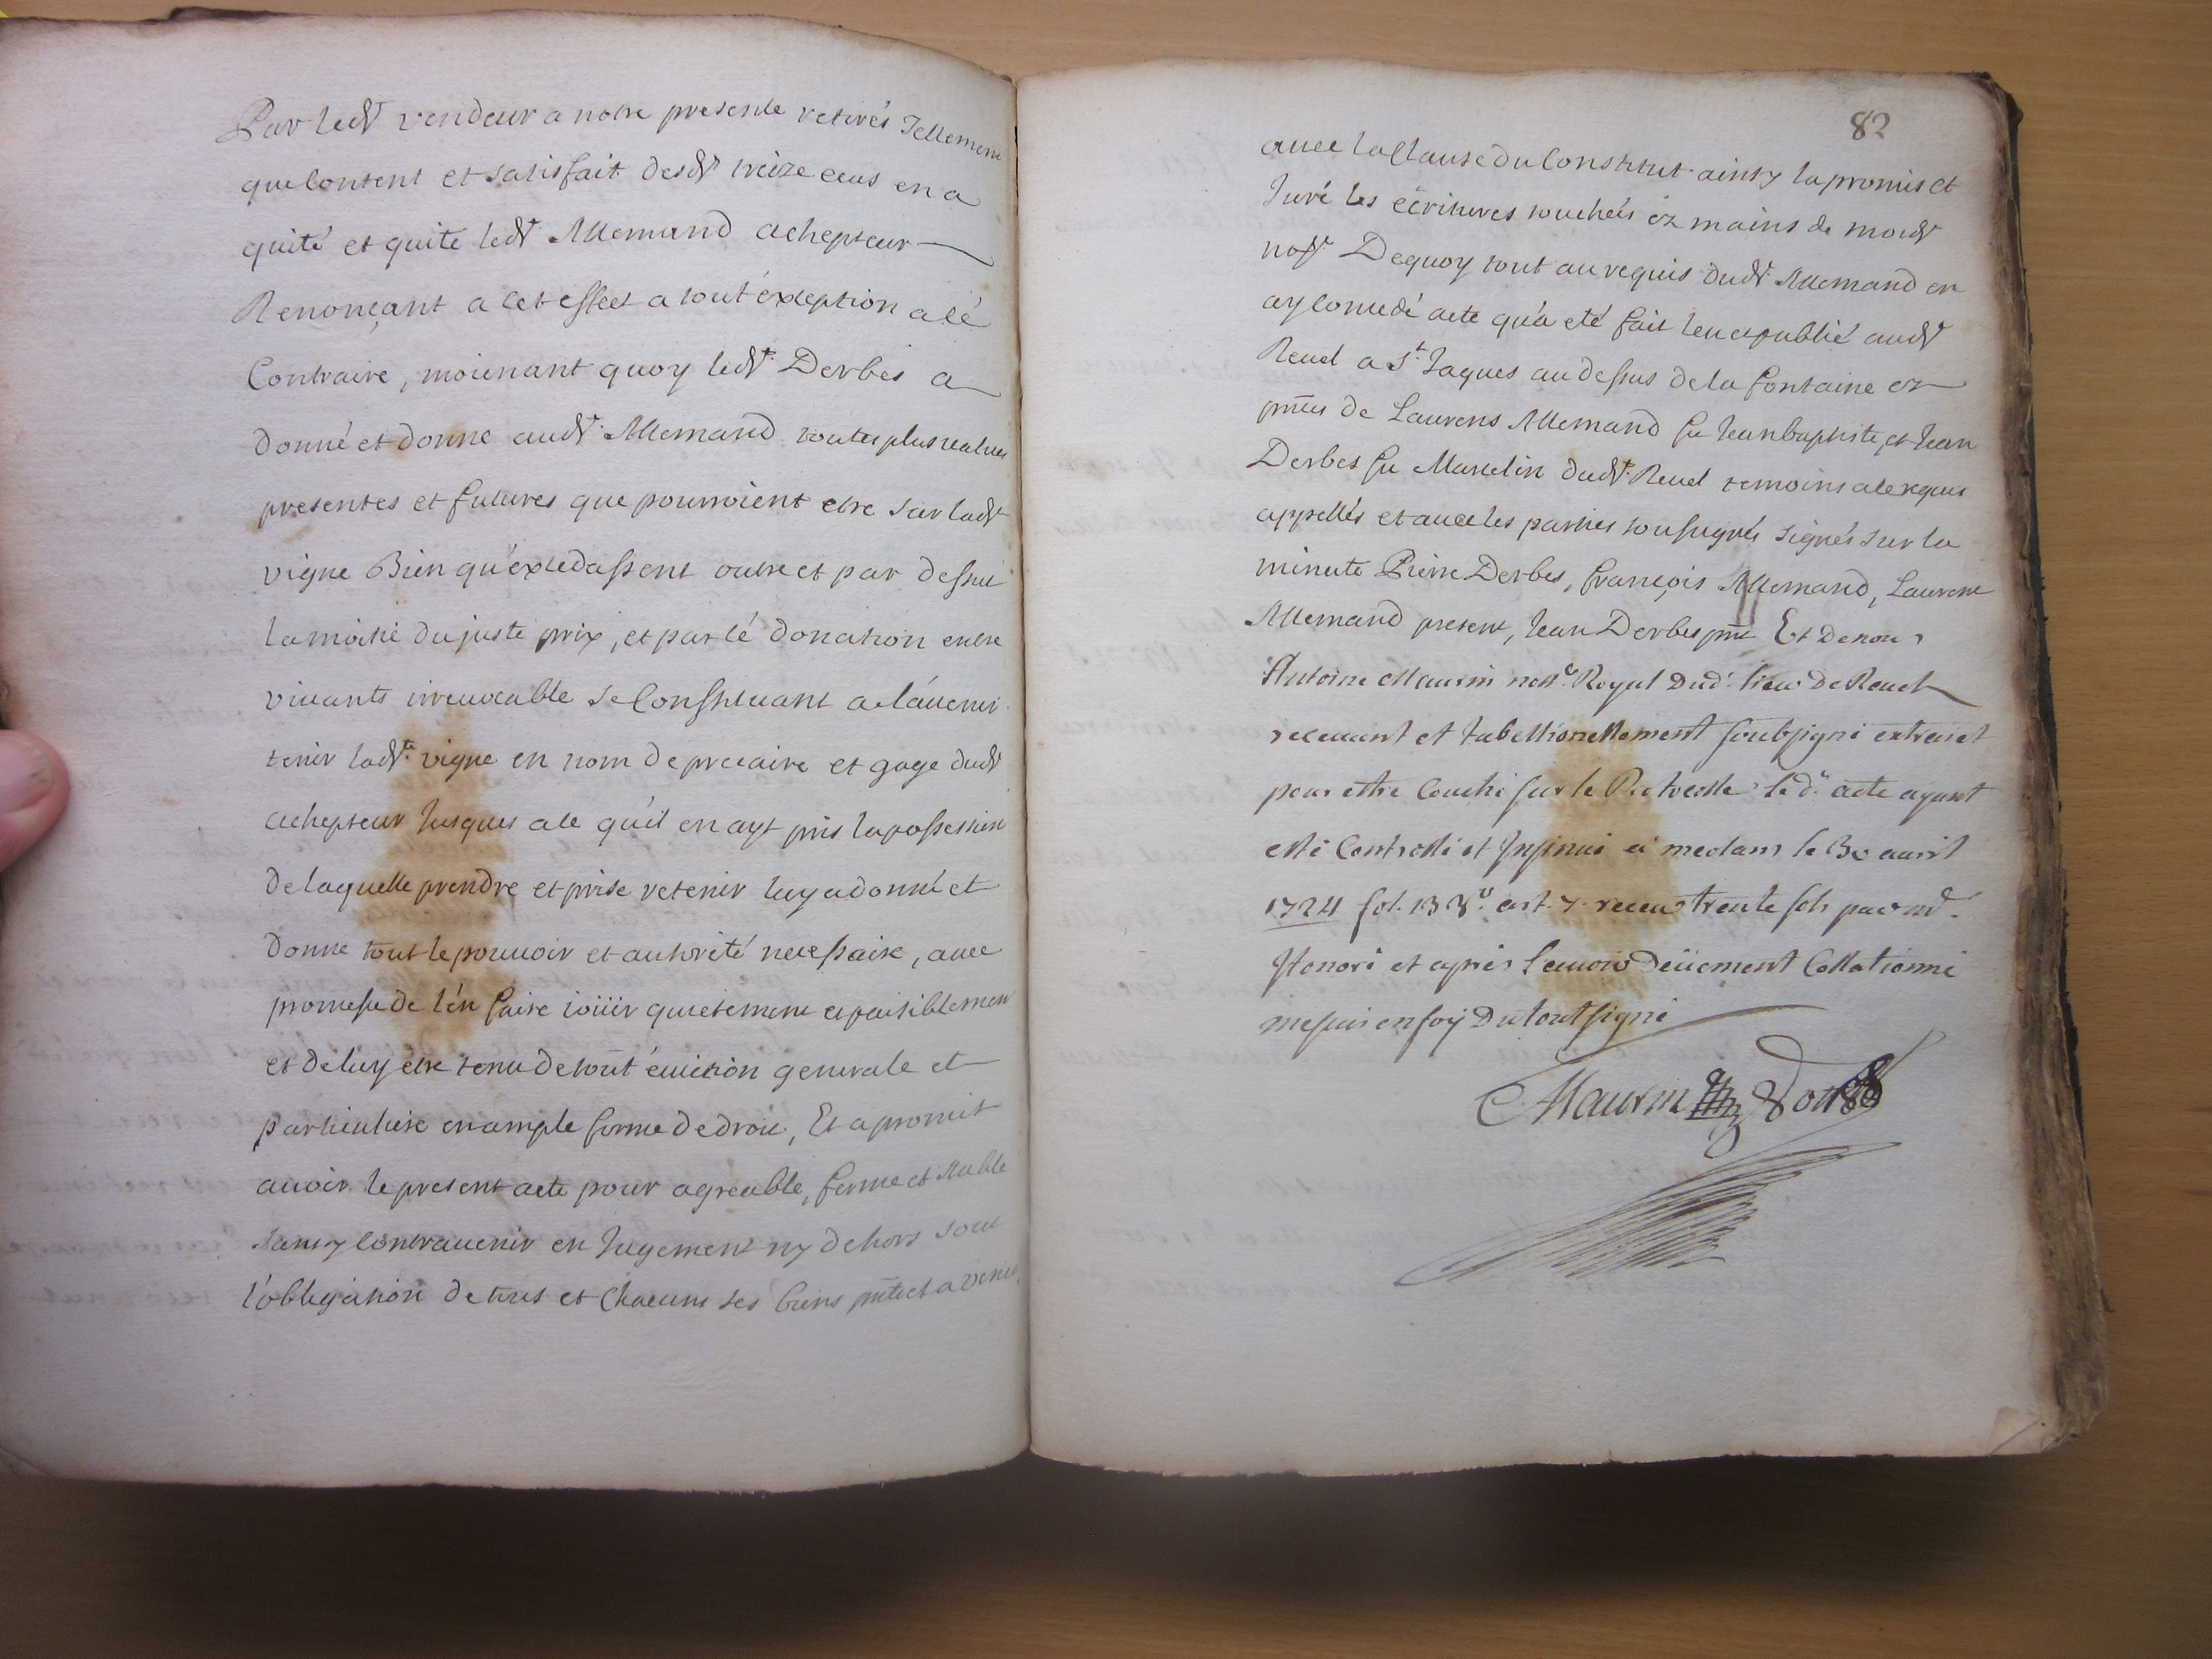 Par ledt vendeur a notre presente retirés Tellement
que Content et satisfait desdt treize ecus en a
quité et quite ledt Allemand achepteur
Renonçant a Cet effect a tout éxception a cé
Contraire, moienant quoy ledt Derbes a
donné et donne audt Allemand toutes plus values
presentes et futures que pourroient etre sur ladt
vigne Bien qu'éxcedassent outre et par dessus
la moitié du juste prix, et par cé donation entre
vivants irrevocable se Constituant a l'avenir
tenir ladte vigne en nom de precaire et gage dudt
achepteur Jusques a ce qu'il en ayt pris la possession
de laquelle prendre et prise retenir luy a donné et
donne tout le pouvoir et autorité necessaire, avec
promesse de l'én faire ioüir quietement et paisiblement
et de luy etre tenu de tout éviction generale et
particuliere en ample forme de droit, Et a promit
avoir le present acte pour agreable, ferme et stable
sans y Contravenir en Jugement ny dehors sous
l'obligation de tous et Chacuns ses biens pnts et a venir
82
avec la Clause du Constitut ainsy la promis et
Juré les écritures touchées éz mains de moidt
nore Dequoy tout au requis dudt Allemand en
ay Concedé acte qu'a eté fait leu et publié audt
Revel a St Jaques au dessus de la fontaine ez
pnces de Laurens Allemand fu Jean baptiste, et Jean
Derbes fu Marcelin dudt Revel temoins a ce requis
appellés et avec les parties soussignés signés sur la
minute Pierre Derbes, françois Allemand, Laurens
Allemand present, Jean Derbes pnt Et de nous
Antoine Maurin nore Royal dud. lieu De Revel
recevant et tabellionellement soubsigné extrait et
pour estre Couché sur le Protocolle le d. acte ayant
esté Controllé et Insinué à meolans le 30 avril
1724 fol. 13 vo. art. 7. receu trente sols par md.
Honoré et aprés l'avoir deüement Collationné
me suis en foy Du tout signé
Maurin nore